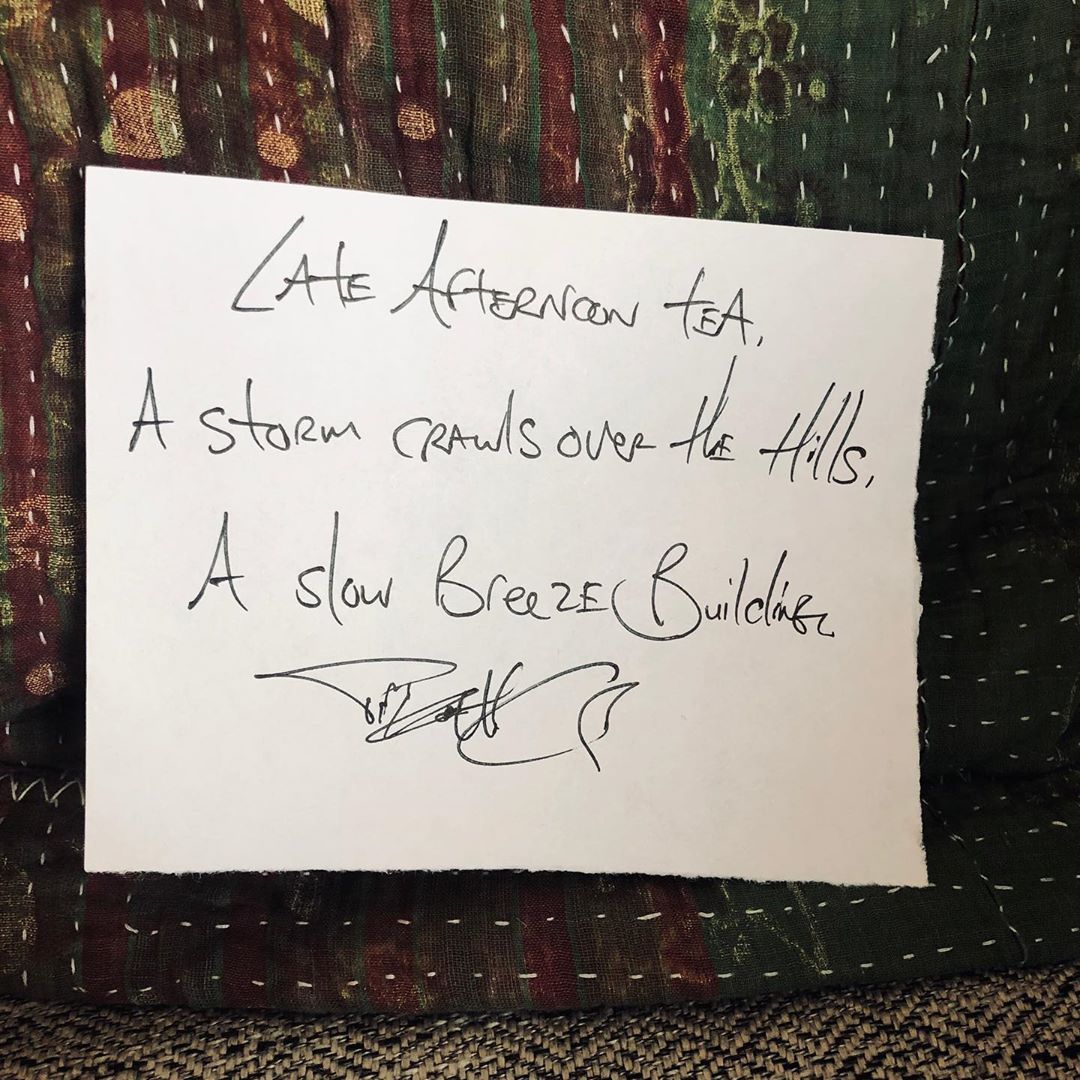 Late Afternoon tea,
A storm crawls over the Hills,
A slow Breeze Building